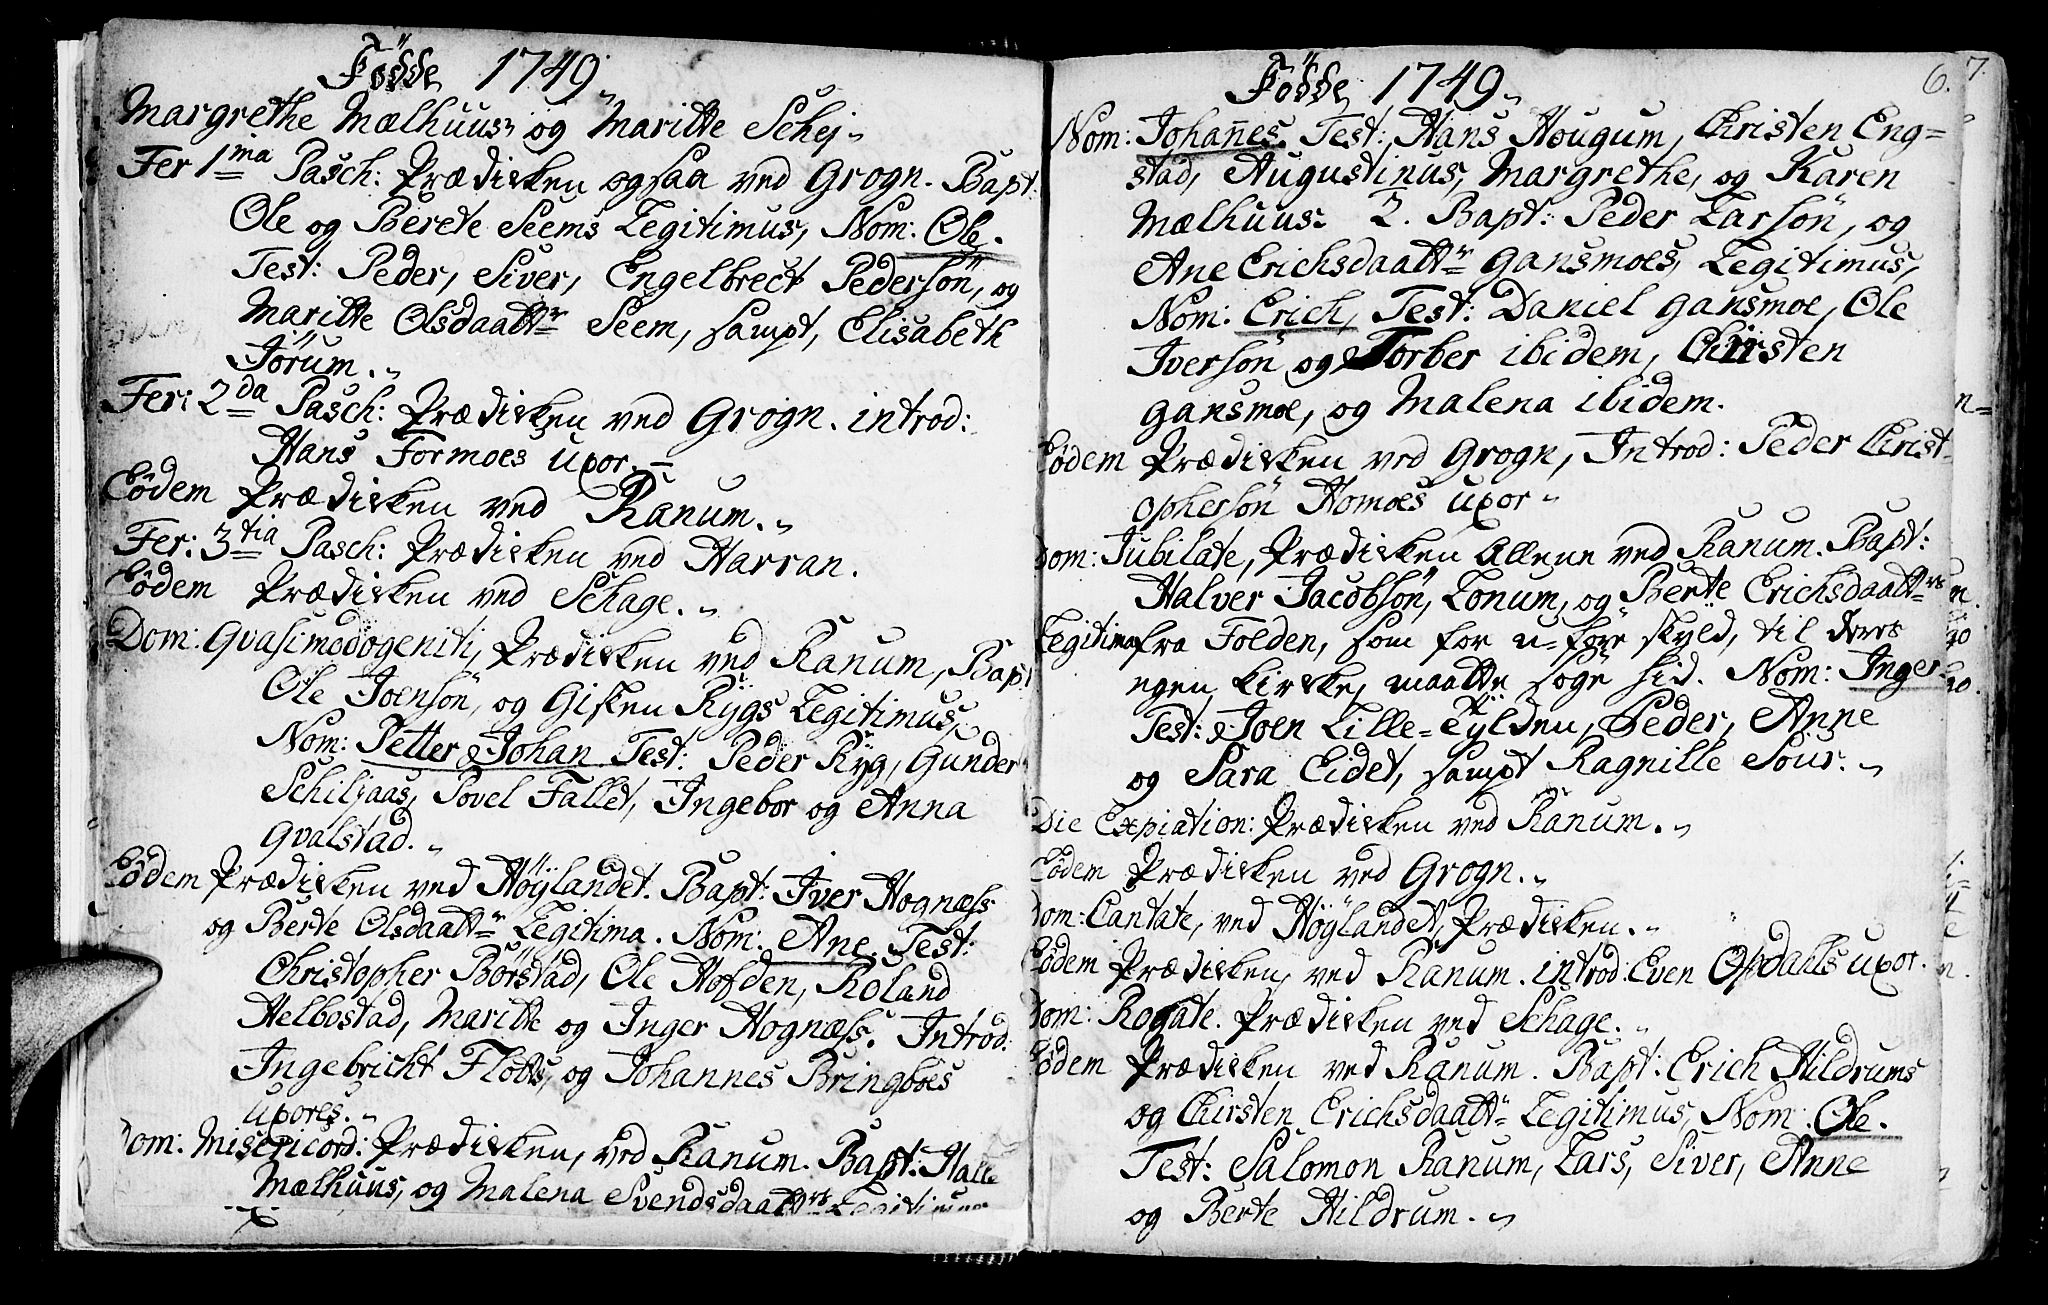 Födde 1749.
Margrethe Mælhuus, og Maritte Schej.
Fer 1ma Pasch: Prædisken ogsaa ved Grogn. Bapt:
Ole og Berete Seems Legitimus, Nom: Ole.
Test: Peder, Siver, Engelbrect Pedersön, og
Maritte Olsdaattr Seem, sampt, Elisabeth
Jörum.
Fer: 2da Pasch: Prædisken ved Grogn. introd:
Hans Formoes uxor.
Eödem Prædisken ved Ranum.
Fer: 3tia Pasch: Prædisken ved Harran.
Eödem Prædisken ved Schage.
Dom: Qvasimodogeniti, Prædisken ved Ranum, Bapt
Ole Joensön, og Gisken Rÿgs Legitimus,
Nom: Petter Johan Test: Peder Rÿg, Gunder
Schiljaas, Povel Fallet, Ingebor og Anna
Qvalstad.
Eödem Prædisken ved Höÿlandet. Bapt: Iver Hognæss
og Berte Olsdaattr Legitima. Nom: Ane. Test:
Christopher Börstad, Ole Hofden, Roland
Helbostad, Maritte og Inger Hognæss. Introd:
Ingebricht Flotts, og Johannes Bringboes
uxores.
Dom: Misericord: Prædisken, ved Ranum. Bapt: Halle
Mælhuus, og Malena Svendsdaattrs Legitimus
Födde 1749.
6. 7.
Nom: Johannes. Test: Hans Hougum, Christen Eng=
stad, Augustinus, Margrethe, og Karen
Mælhuus. 2. Bapt: Peder Larsön, og
Ane Erichsdaattr Gansmoes, Legitimus,
Nom: Erich, Test: Daniel Gansmoe, Ole
Iversön og Torber ibidem, Christen
Gansmoe, og Malena ibidem.
Eödem Prædisken ved Grogn, Introd: Peder Christ-
ophersön Homoes uxor.
Dom: Jubilate, Prædisken Allene ved Ranum. Bapt:
Halver Jacobsön, Lonum, og Berte Erichsdaattrs
Legitima fra Folden, som for u=före skyld, til deres
egen kirke, maatte söge hid. Nom: Inger
Test: Joen Lille=Tylden, Peder, Anne
og Sara Eidet, sampt Ragnille Sour.
Die Expiation: Prædisken ved Ranum.
Eödem Prædisken ved Grogn.
Dom: Cantate, ved Höÿlandet, Prædisken.
Eödem Prædisken, ved Ranum. introd: Even Opdahls uxor.
Dom: Rogate. Prædisken ved Schage.
Eödem Prædisken ved Ranum. Bapt: Erich Hildrums
og Chirsten Erichsdaattr Legitimus, Nom: Ole.
Test: Salomon Ranum, Lars, Siver, Anne
og Berte Hildrum.